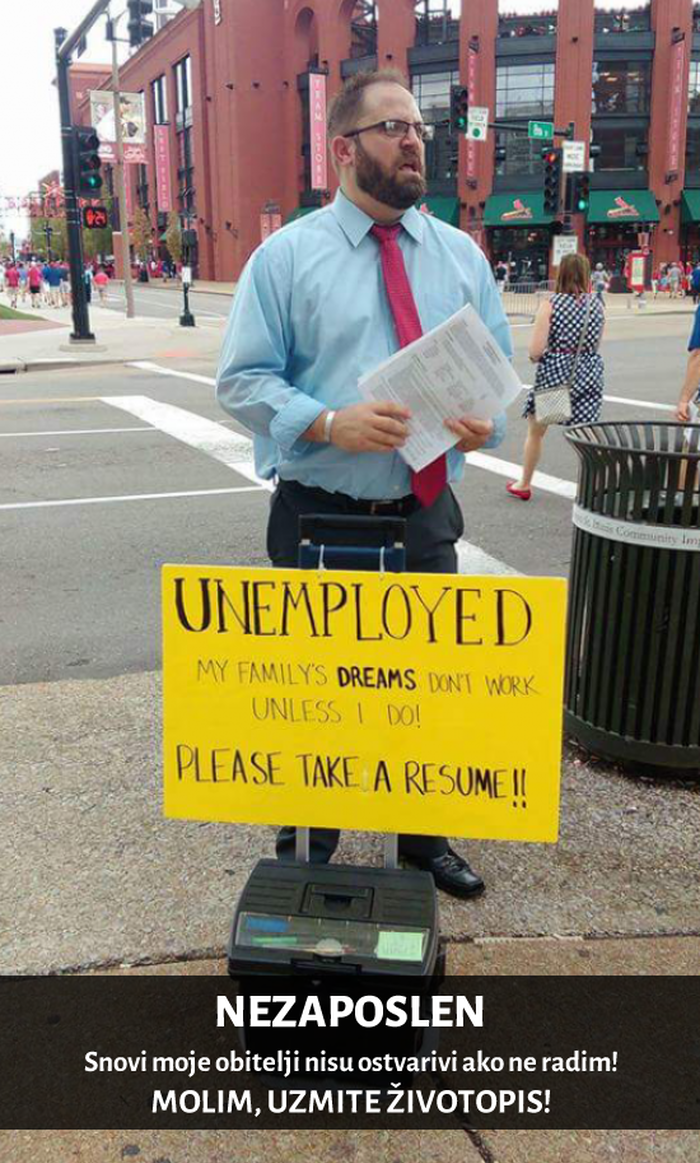 TEAM STORE
UNEMPLOYED
MY FAMILY'S DREAMS DON'T WORK
UNLESS I DO!
PLEASE TAKE A RESUME!!
NEZAPOSLEN
Snovi moje obitelji nisu ostvarivi ako ne radim!
MOLIM, UZMITE ŽIVOTOPIS!